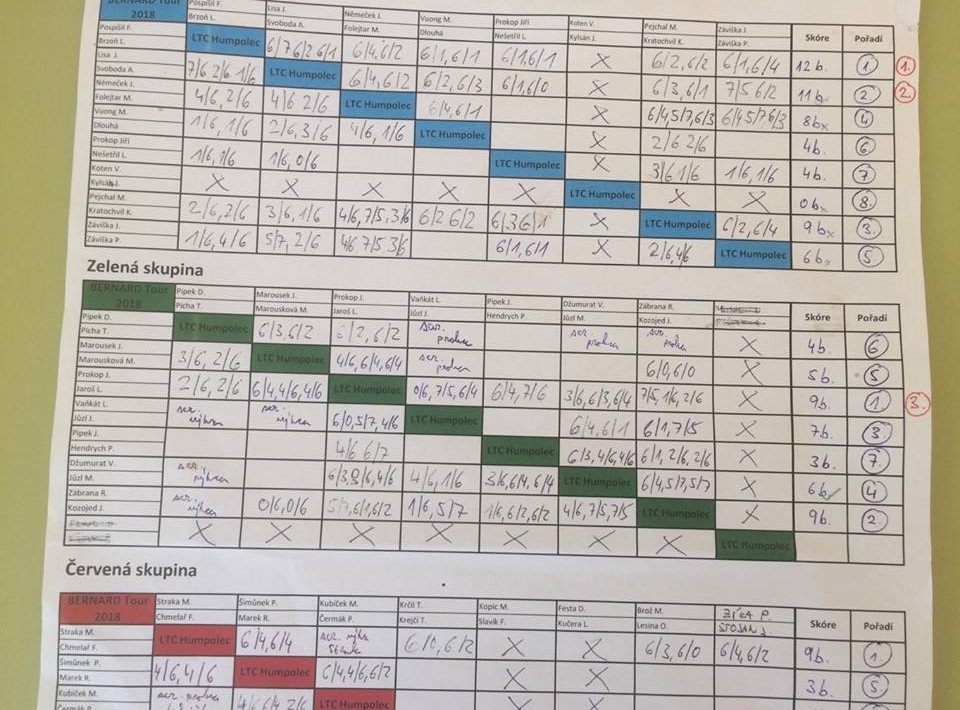 BERNARD Tour 2018 Pospíšil F. Brzoň L. Lisa J. Svoboda A. Němeček J. Folejtar M. Vuong M. Dlouhá Prokop Jiří Nešetřil L. Koten V. Kylsán J. Pejchal M. Kratochvíl K. Záviška J. Záviška P. Skóre Pořadí
Pospíšil F. Brzoň L. LTC Humpolec 6/7 6/2 6/1 6/4, 6/2 6/1, 6/1 6/1, 6/1 X 6/2, 6/2 6/1, 6/4 12 b. 1 1.
Lisa J. Svoboda A. 7/6 2/6 1/6 LTC Humpolec 6/4, 6/2 6/2, 6/3 6/1, 6/0 X 6/3, 6/1 7/5 6/2 11 b. 2. 2.
Němeček J. Folejtar M. 4/6, 2/6 4/6 2/6 LTC Humpolec 6/4, 6/1 X 6/4, 5/7, 6/3 6/4 5/7 6/3 8 b. 4
Vuong M. Dlouhá 1/6, 1/6 2/6, 3/6 4/6, 1/6 LTC Humpolec X 2/6 2/6 4b. 6
Prokop Jiří Nešetřil L. 1/6, 1/6 1/6, 0/6 LTC Humpolec X 3/6 1/6 1/6, 1/6 4b. 7
Koten V. Kylsán J. X X X X X LTC Humpolec X X 0b. 8.
Pejchal M. Kratochvíl K. 2/6, 2/6 3/6, 1/6 4/6, 7/5, 3/6 6/2 6/2 6/3 6/1 X LTC Humpolec 6/2, 6/4 9 b. 3.
Záviška J. Záviška P. 1/6, 4/6 5/7, 2/6 4/6 7/5 3/6 6/1, 6/1 X 2/6, 4/6 LTC Humpolec 6 b. 5.
Zelená skupina
BERNARD Tour 2018 Pipek D. Picha T. Marousek J. Marousková M. Prokop J. Jaroš L. Vaňkát L. Jůzl J. Pipek J. Hendrych P. Džumurat V. Jůzl M. Zábrana R. Kozojed J. Skóre Pořadí
Pipek D. Picha T. LTC Humpolec 6/3, 6/2 6/2, 6/2 scr. prohra scr. prohra scr. prohra X 4b. 6
Marousek J. Marousková M. 3/6, 2/6 LTC Humpolec 4/6, 6/4, 6/4 scr. prohra 6/0, 6/0 X 5b. 5
Prokop J. Jaroš L. 2/6, 2/6 6/4, 4/6, 4/6 LTC Humpolec 0/6, 7/5, 6/4 6/4, 7/6 3/6, 6/3, 6/4 7/5, 1/6, 2/6 X 9b. 1 3.
Vaňkát L. Jůzl J. scr. výhra scr. výhra 6/0, 5/7, 4/6 LTC Humpolec 6/4, 6/1 6/1, 7/5 X 7b. 3
Pipek J. Hendrych P. 4/6 6/7 LTC Humpolec 6/3, 4/6, 4/6 6/1, 2/6, 2/6 X 3b. 7.
Džumurat V. Jůzl M. scr. výhra 6/3, 3/6, 4/6 4/6, 1/6 3/6, 6/4, 6/4 LTC Humpolec 6/4, 5/7, 5/7 X 6b 4
Zábrana R. Kozojed J. scr. výhra 0/6, 0/6 5/7, 6/1, 6/2 1/6, 5/7 1/6, 6/2, 6/2 4/6, 7/5, 7/5 LTC Humpolec X 9b. 2.
X X X X X X X LTC Humpolec
Červená skupina
BERNARD Tour 2018 Straka M. Chmelař F. Šimůnek P. Marek R. Kubíček M. Čermák P. Krčil T. Krejčí T. Kopic M. Slavík F. Festa D. Kučera L. Brož M. Lesina O. ZÍKA P. Skóre Pořadí
Straka M. Chmelař F. LTC Humpolec 6/4, 6/4 scr. 6/0, 6/2 X X 6/3, 6/0 6/4, 6/2 9b. 1.
Šimůnek P. Marek R. 4/6, 4/6 LTC Humpolec 6/4, 4/6, 6/2 X X 3b. 5
Kubíček M. Čermák P. scr. prohra 4/6 6/4 2/6 LTC Humpolec